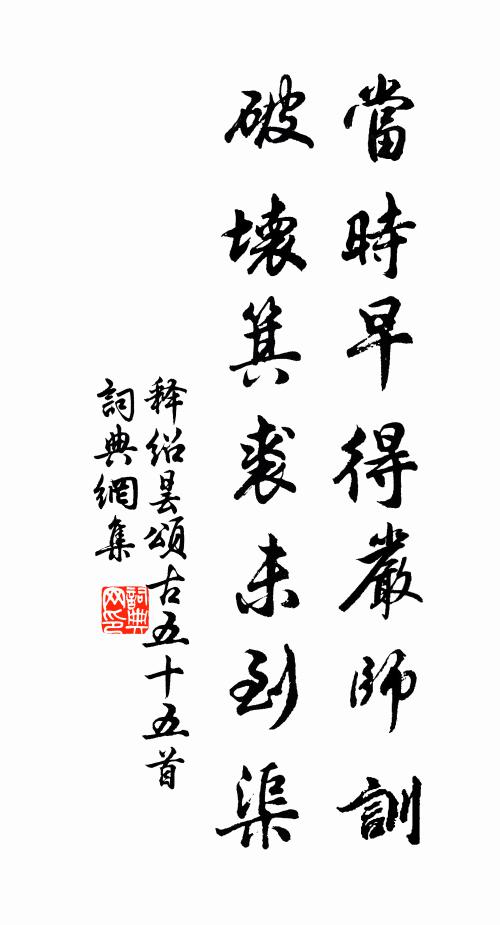 當時早得嚴師訓
破壞箕裘未到渠
释绍昙頌古五十五首
詞典網集
詞典网印